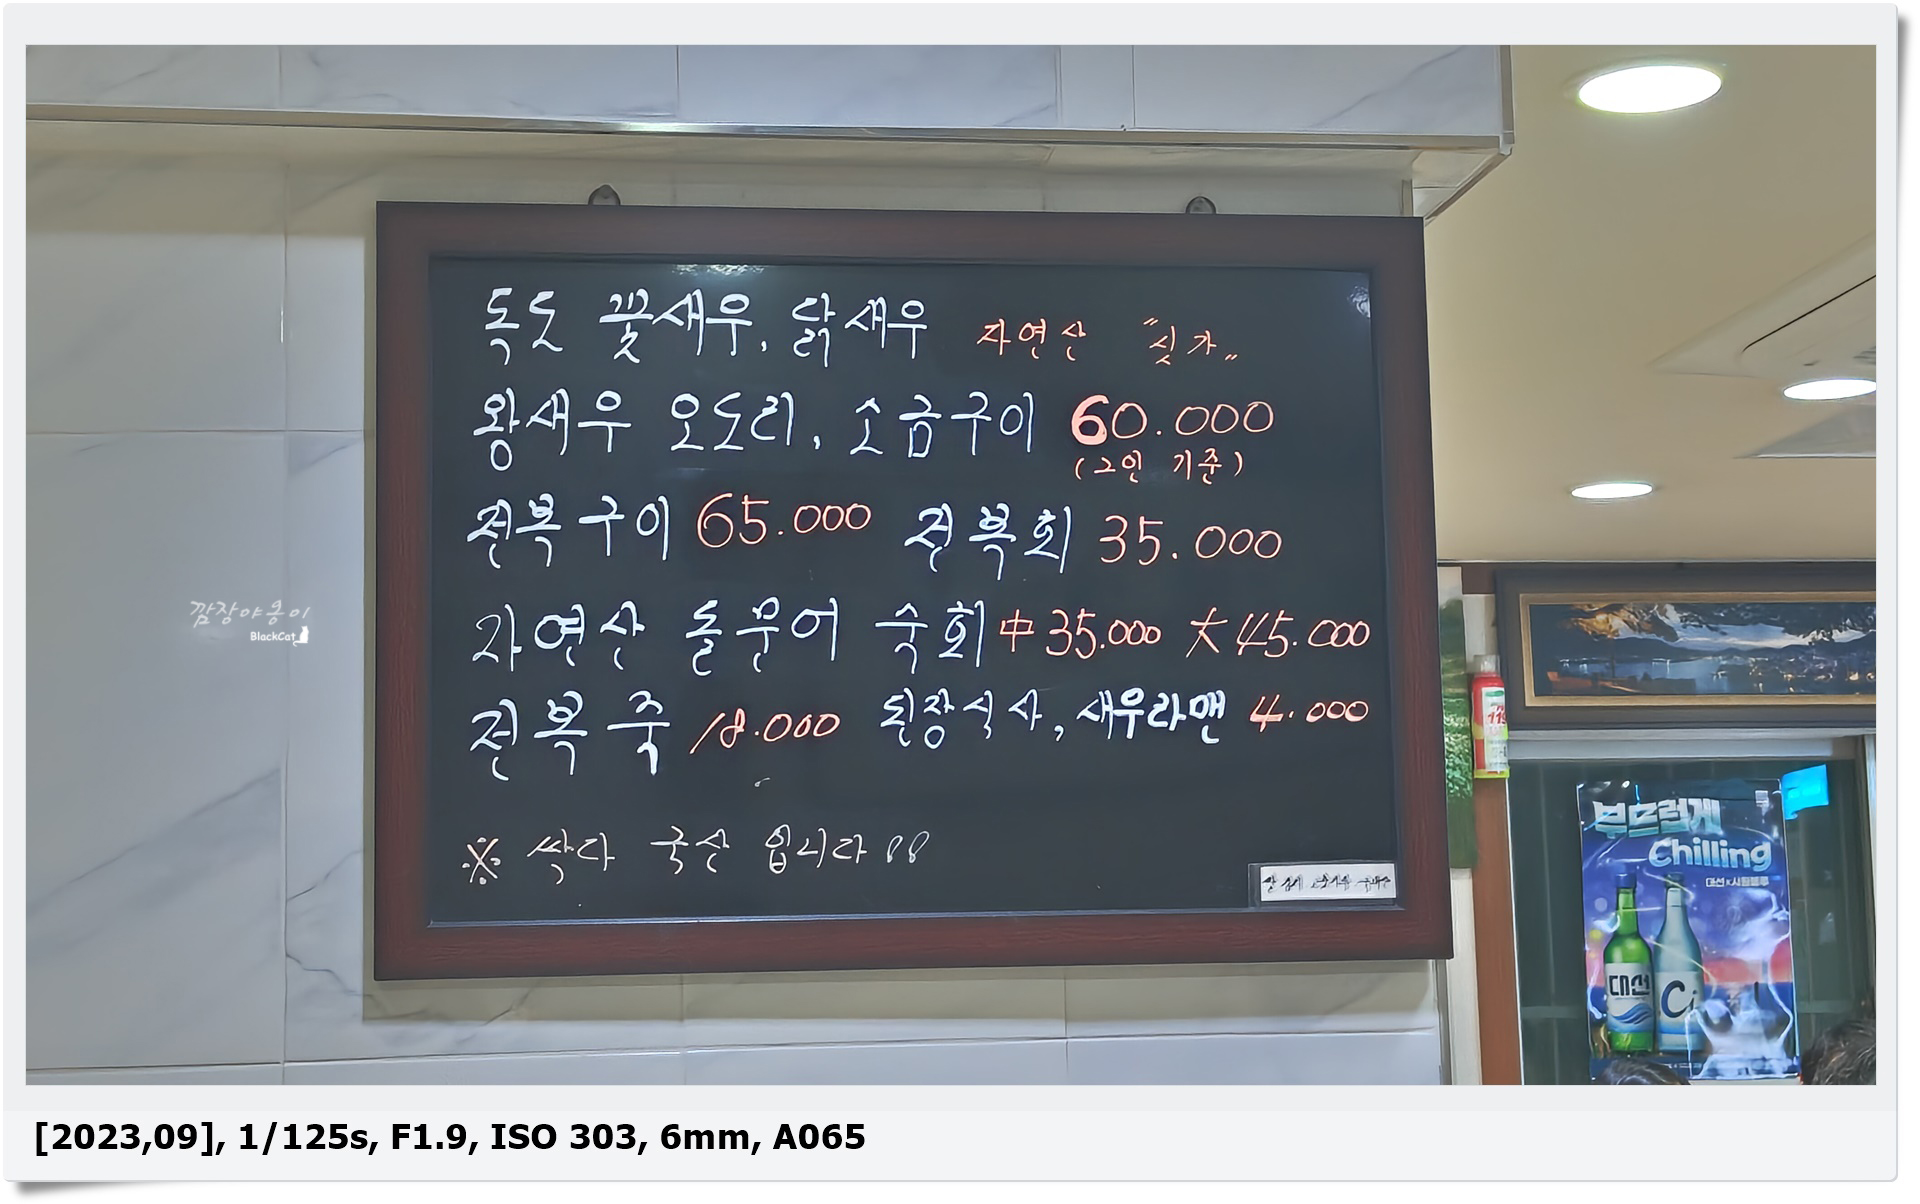 독도 꽃새우, 닭새우 자연산 "싯가"
왕새우 오도리, 소금구이 60.000
(2인 기준)
전복구이 65.000 전복회 35.000
자연산 돌문어 숙회 中 35.000 大 45.000
전복죽 18.000 된장식사, 새우라맨 4.000
※ 싹다 국산 입니다!!
깜장야옹이
BlackCat
119
부드럽게
Chilling
대선
C1
[2023,09], 1/125s, F1.9, ISO 303, 6mm, A065